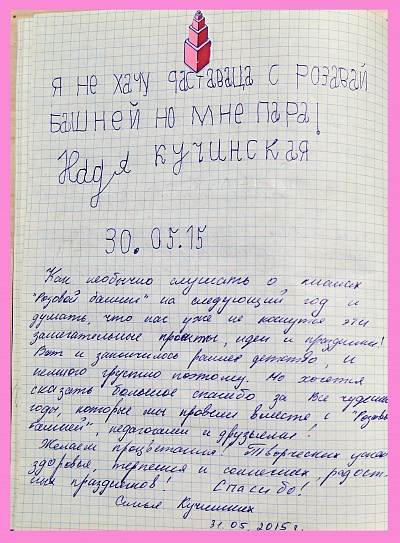 Я не хачу даставаца с розавай
башней но мне пара!
Надя Кучинская
30.05.15
Как необычно слушать о планах
"Розовой башни" на следующий год и
думать, что нас уже не коснутся эти
замечательные проекты, идеи и праздники!
Вот и закончилось раннее детство, и
немного грустно поэтому. Но хочется
сказать большое спасибо за все чудесные
годы, которые мы провели вместе с "Розовой
башней", педагогами и друзьями!
Желаем процветания! Творческих
здоровья, терпения и радост-
праздников! Спасибо!
Семья Кучинских
31.05.2015г.